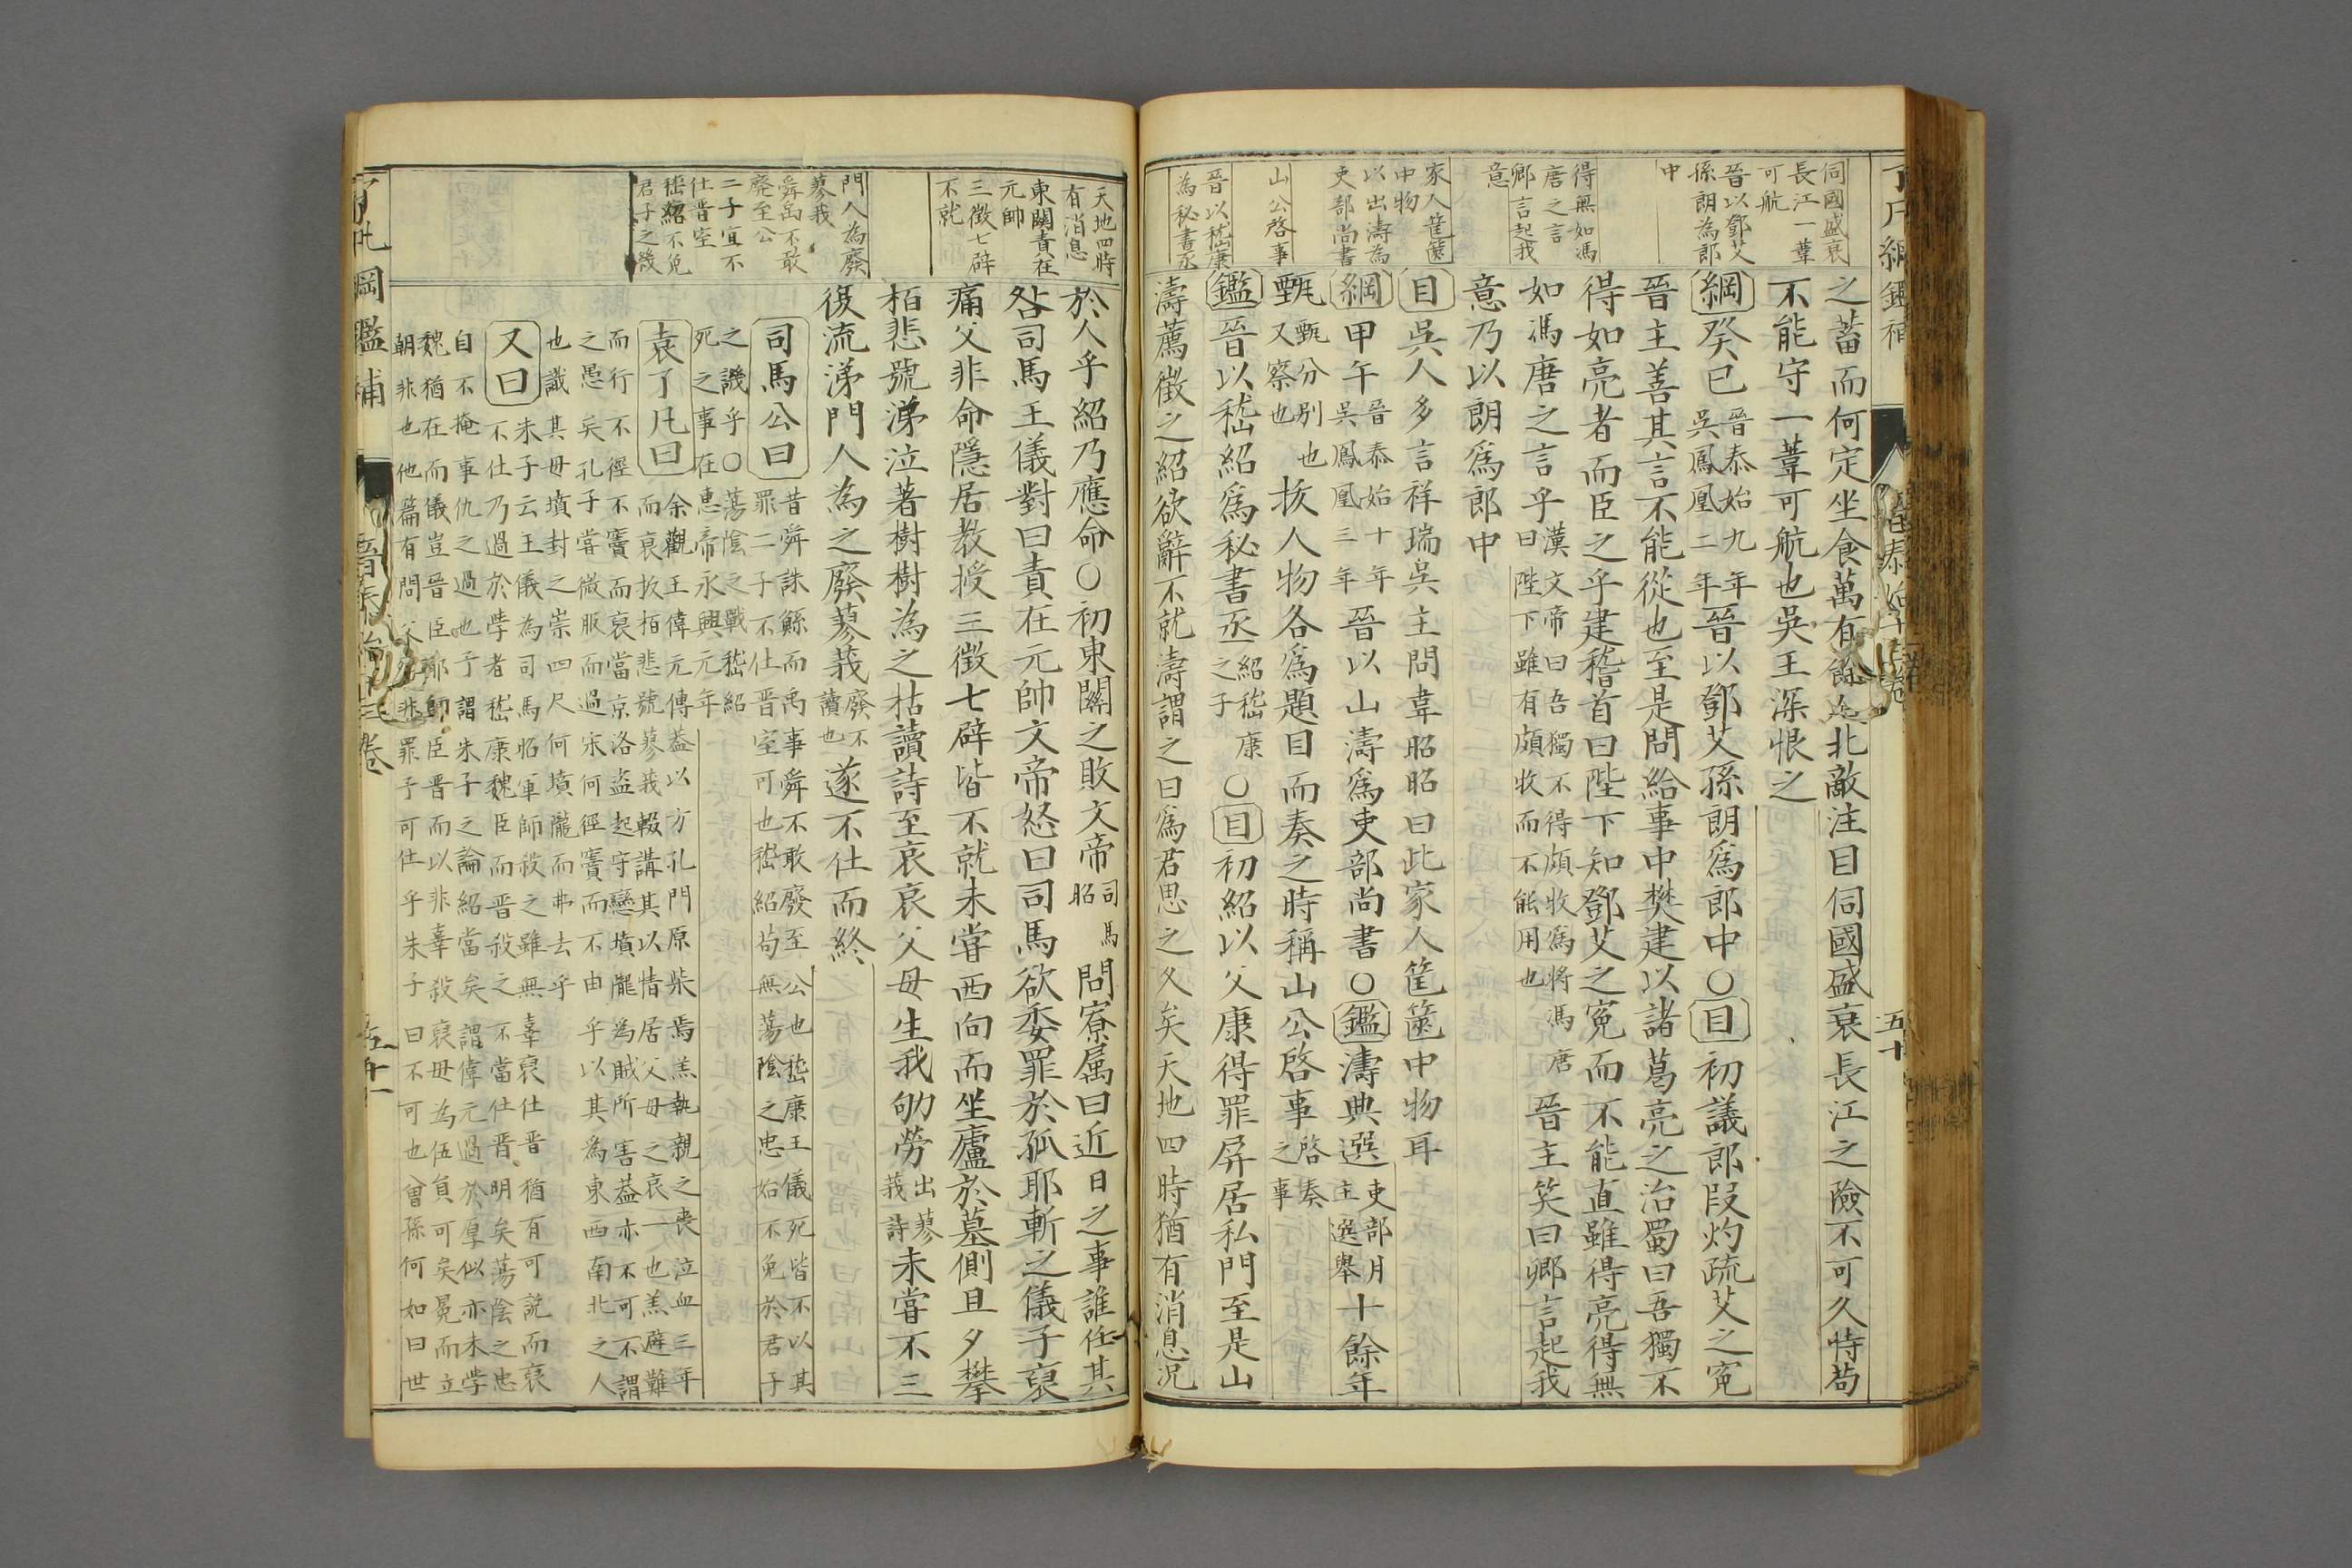 伺國盛衰
長江一葦
可航
晉以鄧艾
孫朗為郎
中
得無如馮
唐之言
鄉言起我
意
家人筐篋
中物
以出濤為
吏部尚書
山公啓事
晉以嵇康
為秘書丞
之蓄而何定坐食萬有餘 北敵注目伺國盛衰長江之險不可久恃苟
不能守一葦可航也吳王深恨之
綱癸巳晉泰始九年吳鳳凰二年晉以鄧艾孫朗爲郎中○目初議郎叚灼疏艾之寃
晉主善其言不能從也至是問給事中樊建以諸葛亮之治蜀曰吾獨不
得如亮者而臣之乎建稽首曰陛下知鄧艾之寃而不能直雖得亮得無
如馮唐之言乎漢文帝曰吾獨不得頗牧爲將馮唐曰陛下雖有頗牧而不能用也晉主笑曰卿言起我
意乃以朗爲郎中
目吳人多言祥瑞吳主問韋昭昭曰此家人筐篋中物耳
綱甲午晉泰始十年吳鳳凰三年晉以山濤爲吏部尚書○鑑濤典選吏部月主選舉十餘年
甄甄分别也又察也拔人物各爲題目而奏之時稱山公啓事啓奏之事
鑑晉以嵇紹爲秘書丞紹嵇康之子○目初紹以父康得罪屏居私門至是山
濤薦徵之紹欲辭不就濤謂之曰爲君思之久矣天地四時猶有消息況
五十
天地四時
有消息
東關責在
元帥
三徵七辟
不就
門人為廢
蓼莪
舜禹不敢
廢至公
二子宜不
仕晉室
嵇紹不免
君子之譏
於人乎紹乃應命○初東關之敗文帝司馬昭問寮属曰近日之事誰任其
咎司馬王儀對曰責在元帥文帝怒曰司馬欲委罪於孤耶斬之儀子裒
痛父非命隱居教授三徵七辟皆不就未甞西向而坐廬於墓側旦夕攀
栢悲號涕泣著樹樹為之枯讀詩至哀哀父母生我劬勞出蓼莪詩未嘗不三
復流涕門人為之廢蓼莪廢不讀也遂不仕而終
司馬公曰昔舜誅鯀而禹事舜不敢廢至公也嵇康王儀死皆不以其
罪二子不仕晉室可也嵇紹苟無蕩陰之忠始不免於君子
之譏乎○蕩陰之戰嵇紹
死之事在惠帝永興元年
袁了凡曰余觀王偉元傳蓋以方孔門原柴焉羔執親之喪泣血三年
而哀扳栢悲號蓼莪輟講其以情居父母之哀一也羔避難
而行不徑不竇而裒當京洛盗起守戀墳隴為賊所害葢亦不可不謂
之愚矣孔子甞微服而過宋何徑竇而不由乎以其為東西南北之人
也識其母墳封之崇四尺何墳隴而弗去乎
又曰朱子云王儀為司馬昭軍師殺之雖無辜裒仕晋猶有可説而裒
不仕乃過於孝者嵇康魏臣而晋殺之不當仕晋明矣蕩陰之忠
自不掩事仇之過也予謂朱子之論紹當矣謂偉元過於厚似亦未孛
魏猶在而儀豈晋臣耶師臣晋而以非辜殺裒毋為伍負可矣晃而立
朝非也他篇有問父死非罪予可仕乎朱子曰不可也曾孫何如曰世